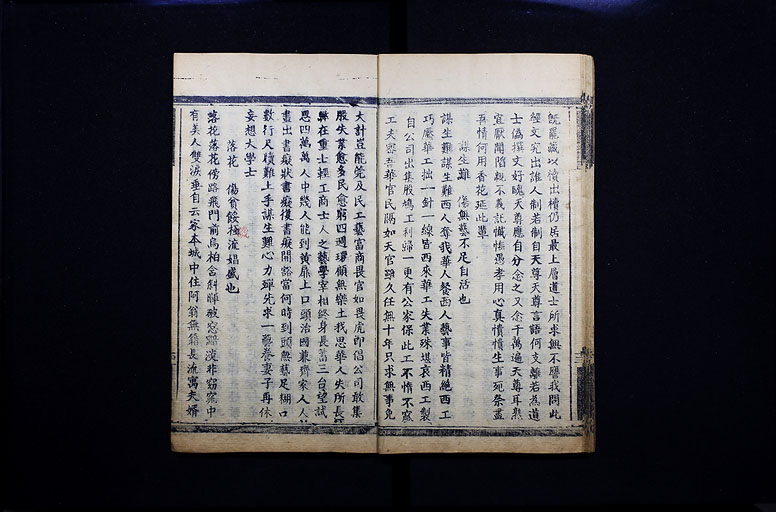 既罷藏以櫝出櫝仍居最上層道士所求無不應我問此
經文究出誰人制若制自天尊天尊言語何支離若為道
士偽撰文好醜天尊應自分念之又念千萬遍天尊耳熟
宜厭聞陷親不義託懺悔愚孝用心真憒憒生事死祭盡
吾情何用香花延此輩
謀生難 傷無藝不足自活也
謀生難謀生難西人奪我華人餐西人藝事皆精絕西工
巧廢華工拙一針一線皆西來華工失業殊堪哀西工製
自公司出集股鳩工利歸一更有公家保此工不惰不窳
工夫密吾華官民隔如天官雖久任無十年只求無事免
大計豈能筦及民工藝富商畏官如畏虎即倡公司敢集
股失業愈多民愈窮四週環顧無樂土我思華人失所長
縣在重士輕工商士人之藝學宰相終身長蓄三台望試
思四萬萬人中幾人能到黃扉上口頭治國兼齊家人人
畫出書癡狀書癡復書癡開豁當何時到頭無藝足糊口
數行尺牘難上手謀生難心力殫先求一藝養妻子再休
妄想大學士
落花 傷貧餒極流娼盛也
落花落花傍路飛門前烏桕含斜暉破窓黯淡非窈窕中
有美人雙淚垂自云家本城中住阿翁無籍長流寓夫婿